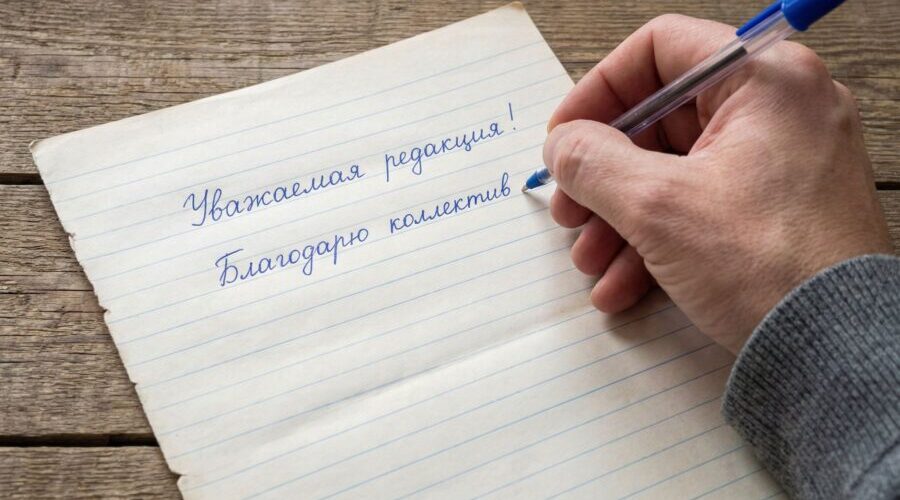 Уважаемая редакция!
Благодарю коллектив